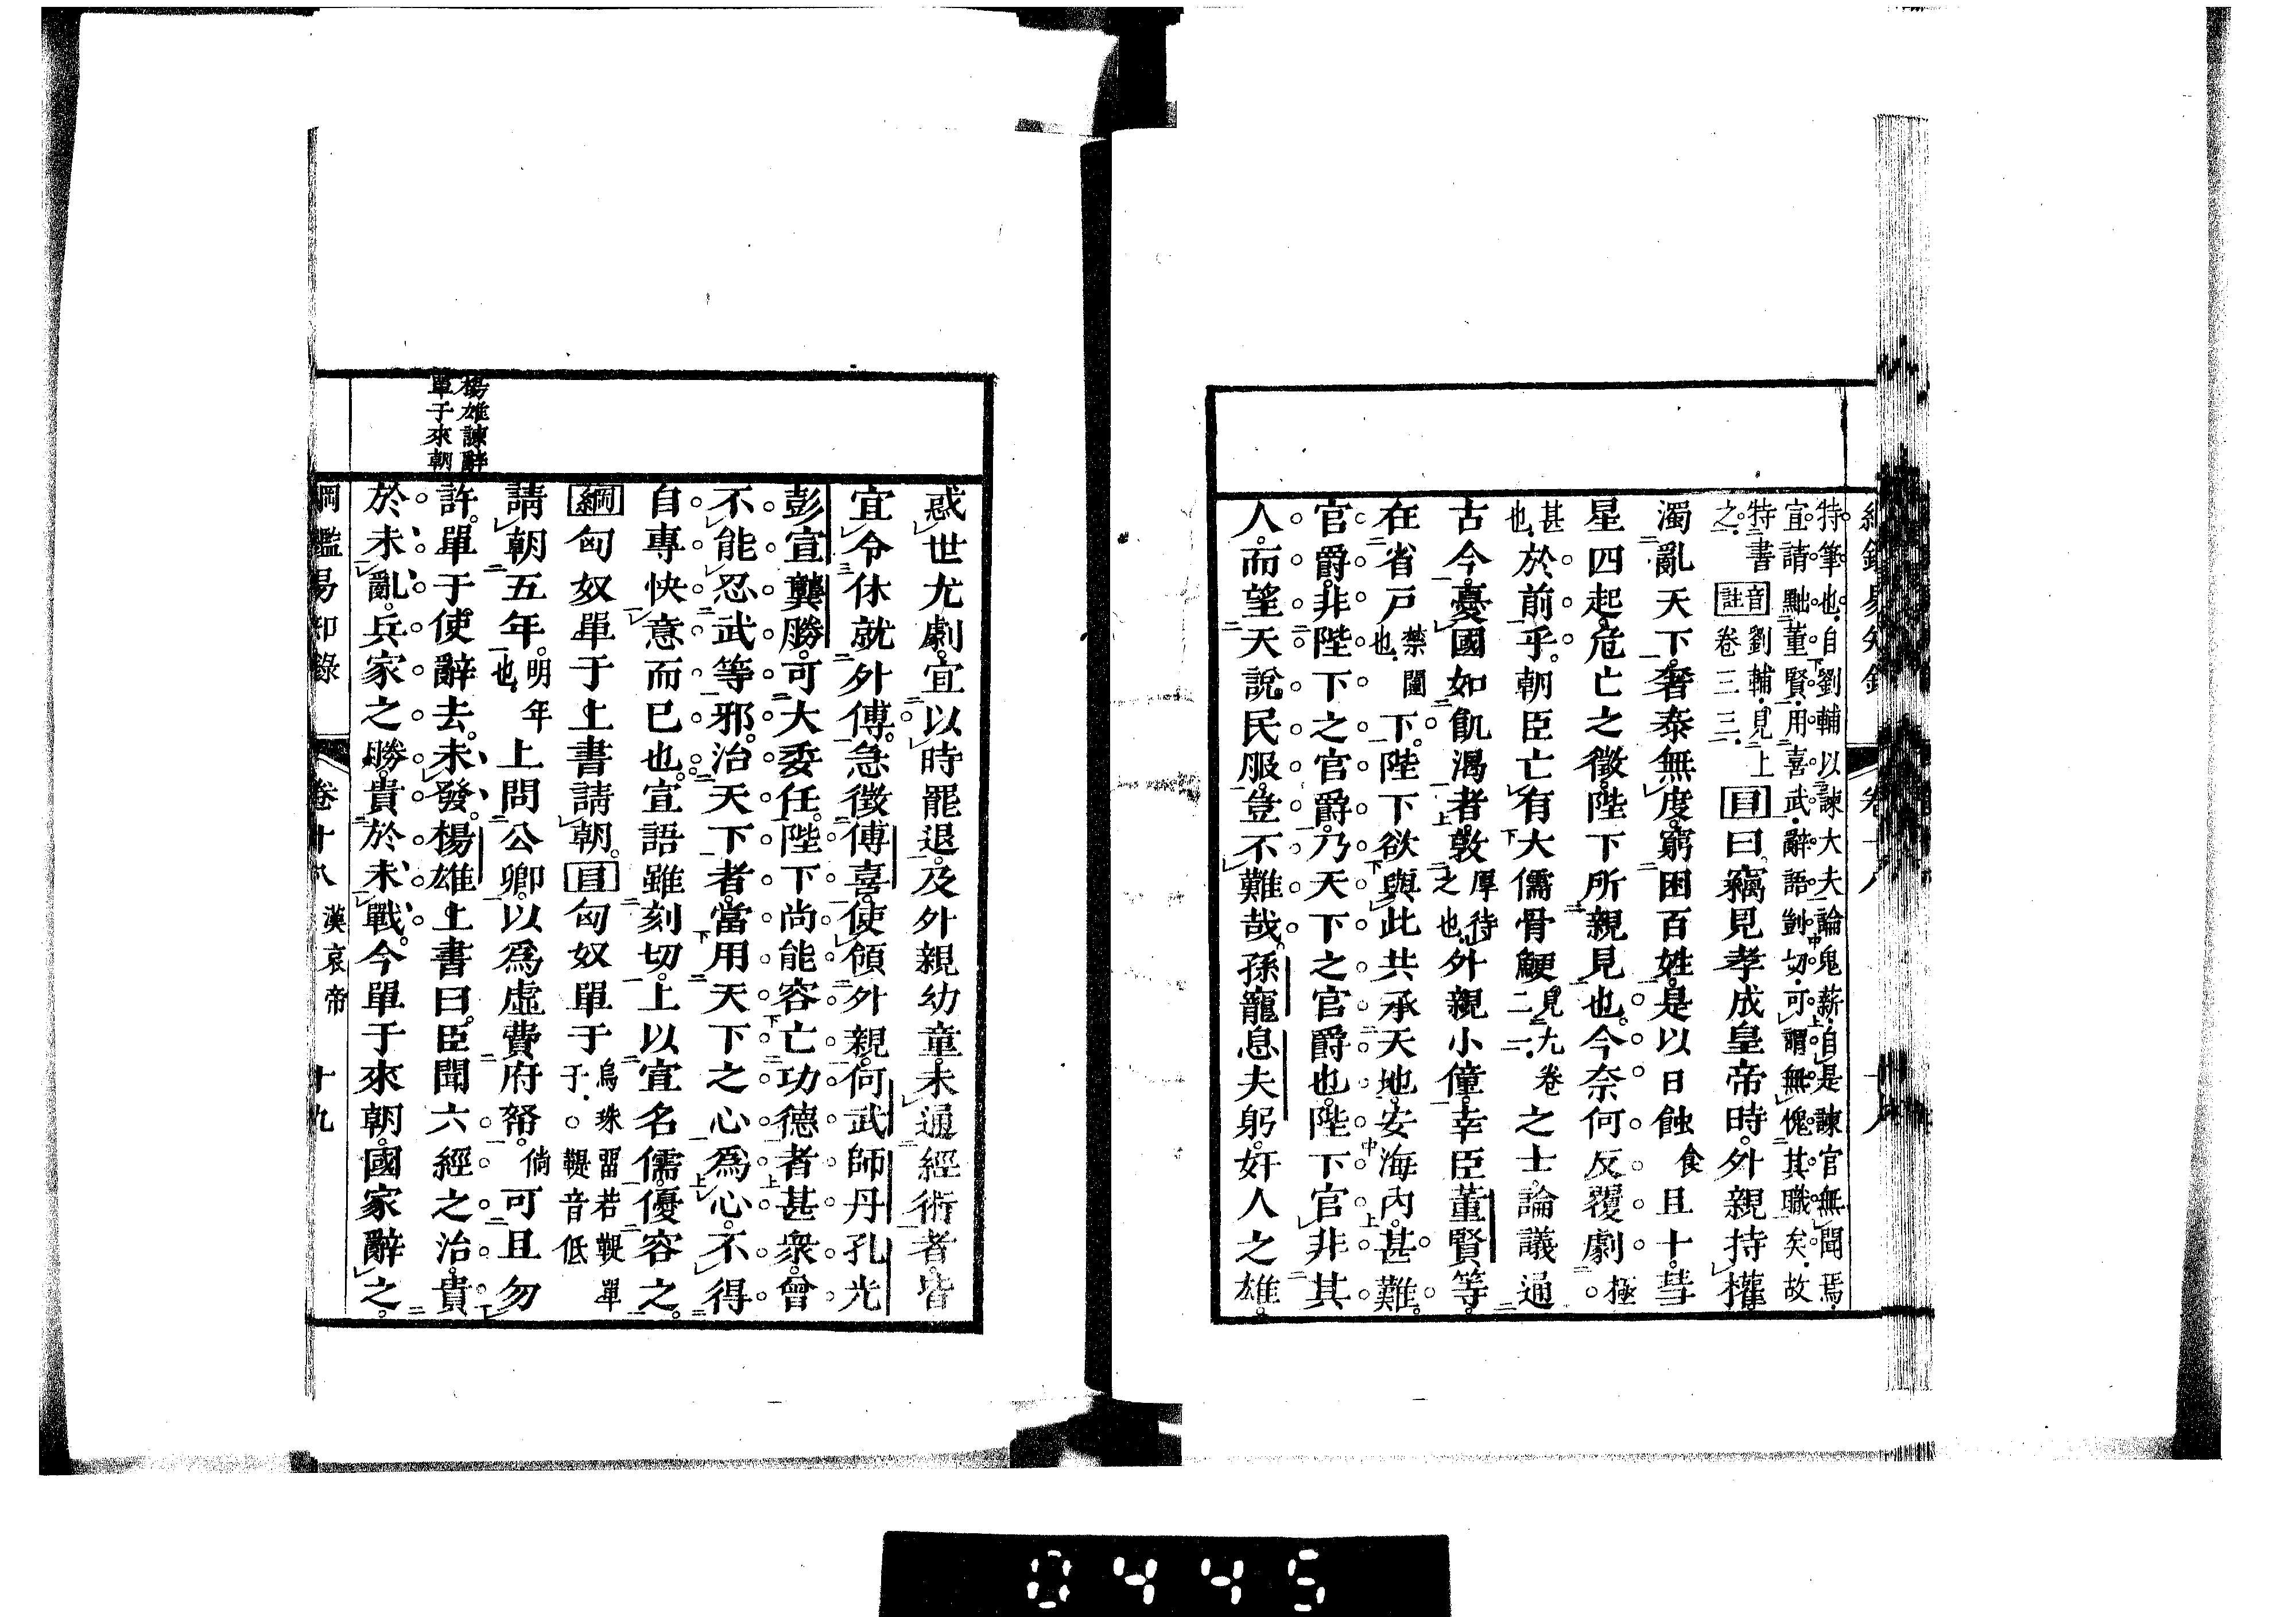 特筆也自劉輔以諫大夫論鬼薪自是諫官無聞焉
宣請黜董賢用喜武辭語剴切可謂無愧其職矣故
特書
之
音註
劉輔見上
卷三三
目曰竊見孝成皇帝時外親持權
濁亂天下奢泰無度窮困百姓是以日蝕食且十彗
星四起危亡之徵陛下所親見也今奈何反覆劇極
甚也於前乎朝臣亡有大儒骨鯁見九卷二一之士論議通
古今憂國如飢渴者敦厚待之也外親小僮幸臣董賢等
在省戶禁闥也下陛下欲與此共承天地安海內甚難
官爵非陛下之官爵乃天下之官爵也陛下官非其
人而望天說民服豈不難哉孫寵息夫躬奸人之雄
惑世尤劇宜以時罷退及外親幼童未通經術者皆
宜令休就外傅急徵傅喜使領外親何武師丹孔光
彭宣龔勝可大委任陛下尚能容亡功德者甚衆曾
不能忍武等邪治天下者當用天下之心爲心不得
自專快意而已也宣語雖刻切上以宣名儒優容之
綱匈奴單于上書請朝目匈奴單于烏珠畱若鞮單于○鞮音低
請朝五年明年也上問公卿以爲虛費府帑倘可且勿
許單于使辭去未發楊雄上書曰臣聞六經之治貴
於未亂兵家之勝貴於未戰今單于來朝國家辭之
楊雄諫辭
單于來朝
綱鑑易知錄 卷十八 漢哀帝 十九